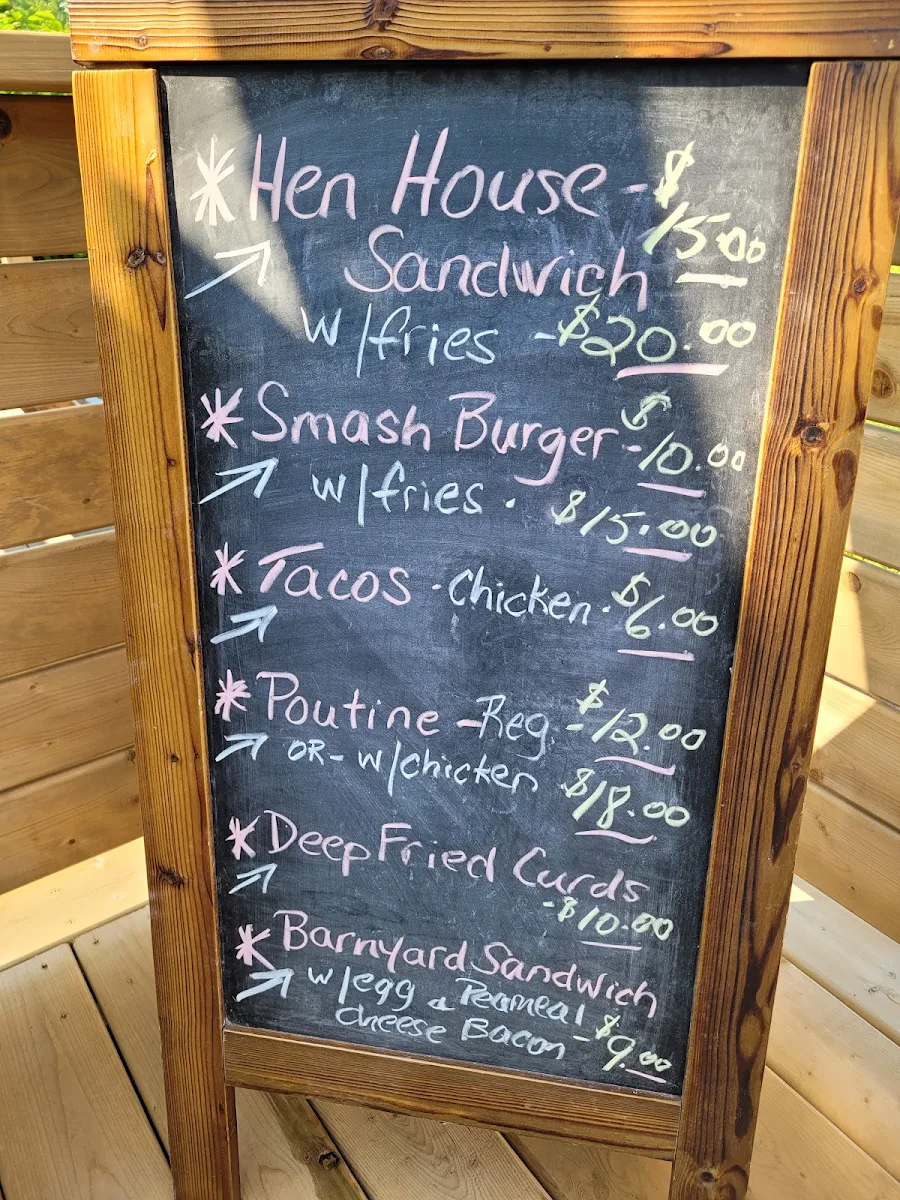 * Hen House - $15.00
Sandwich
w/fries - $20.00
* Smash Burger - $10.00
w/fries . $15.00
* Tacos . Chicken . $6.00
* Poutine - Reg. - $12.00
OR - w/chicken $18.00
* Deep Fried Curds
- $10.00
* Barnyard Sandwich
w/egg & Peameal
cheese Bacon - $9.00